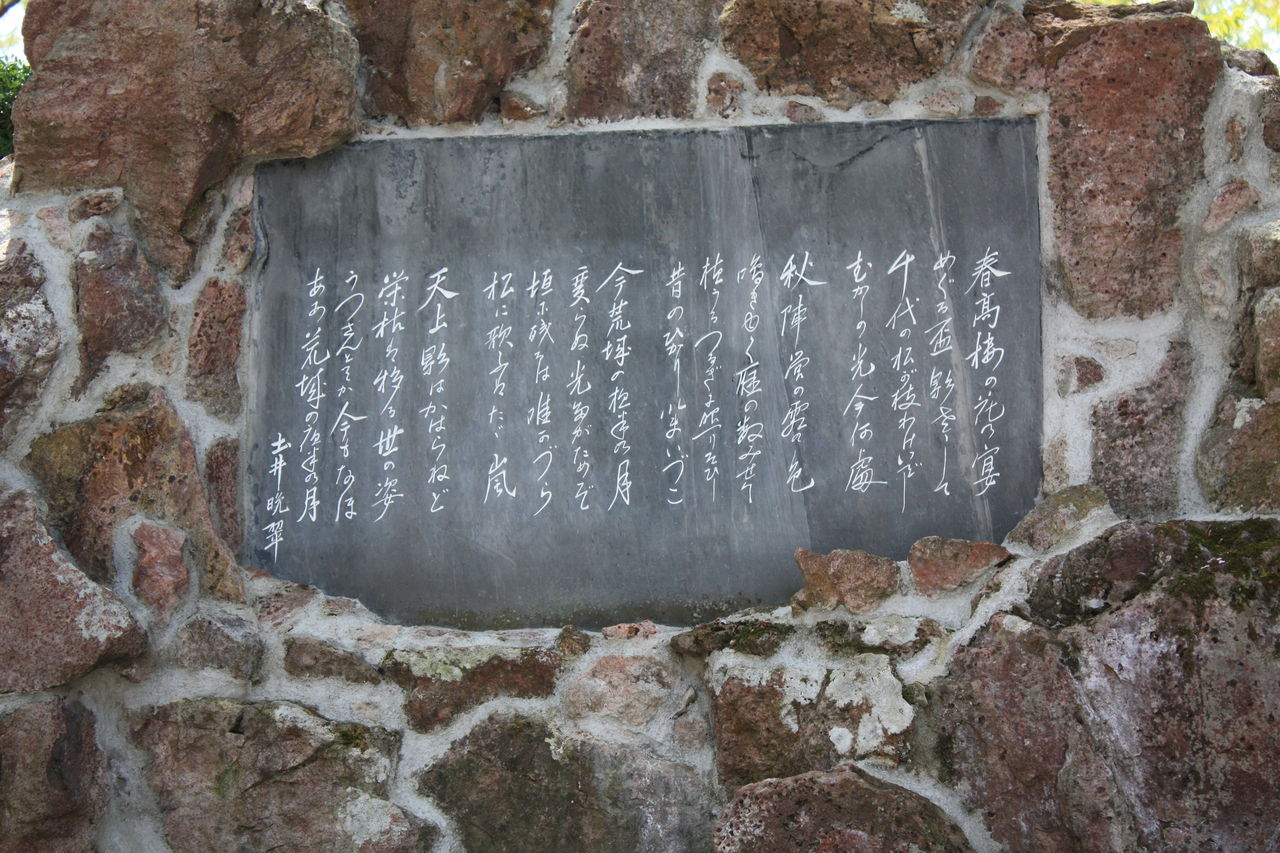 春高楼の花の宴
めぐる盃影さして
千代の松が枝わけいでし
むかしの光今何處
秋陣営の霜の色
鳴き行く雁の数みせて
植うるつるぎに照りそひし
昔のひかり今いづこ
今荒城の夜半の月
変らぬ光誰がためぞ
垣に残るは唯かづら
松に歌ふはただ嵐
天上影はかはらねど
栄枯は移る世の姿
うつさんとてか今もなほ
ああ荒城の夜半の月
土井晩翠